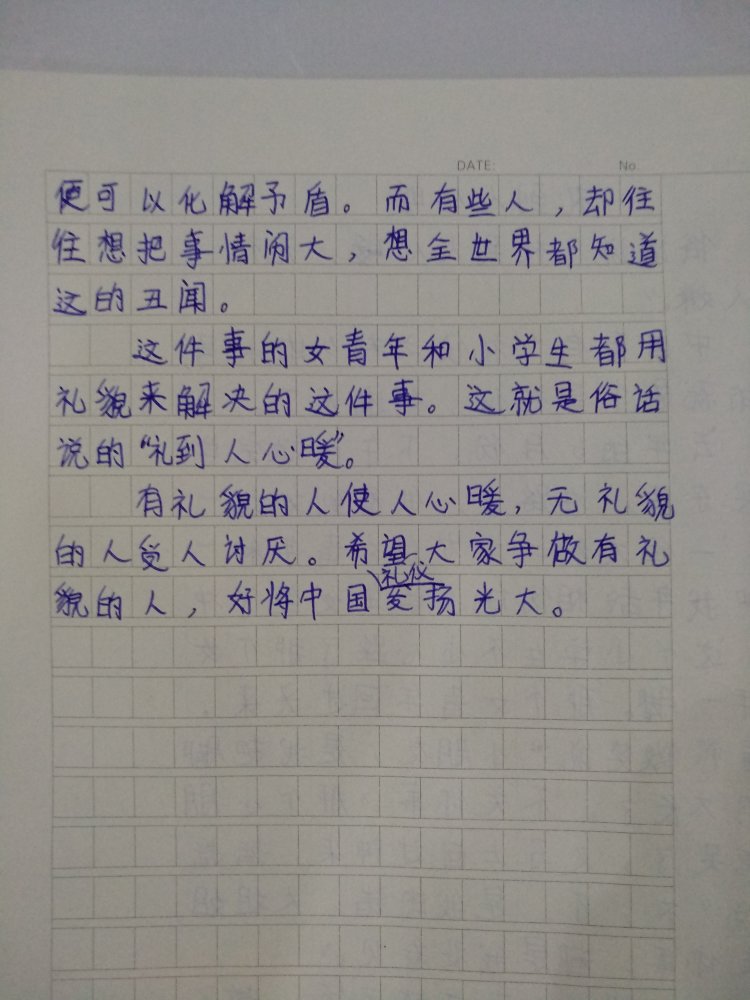 DATE: No
便可以化解予盾。而有些人，却往
往想把事情闹大，想全世界都知道
这的丑闻。
这件事的女青年和小学生都用
礼貌来解决的这件事。这就是俗话
说的“礼到人心暖”。
有礼貌的人使人心暖，无礼貌
的人受人讨厌。希望大家争做有礼
礼仪
貌的人，好将中国发扬光大。